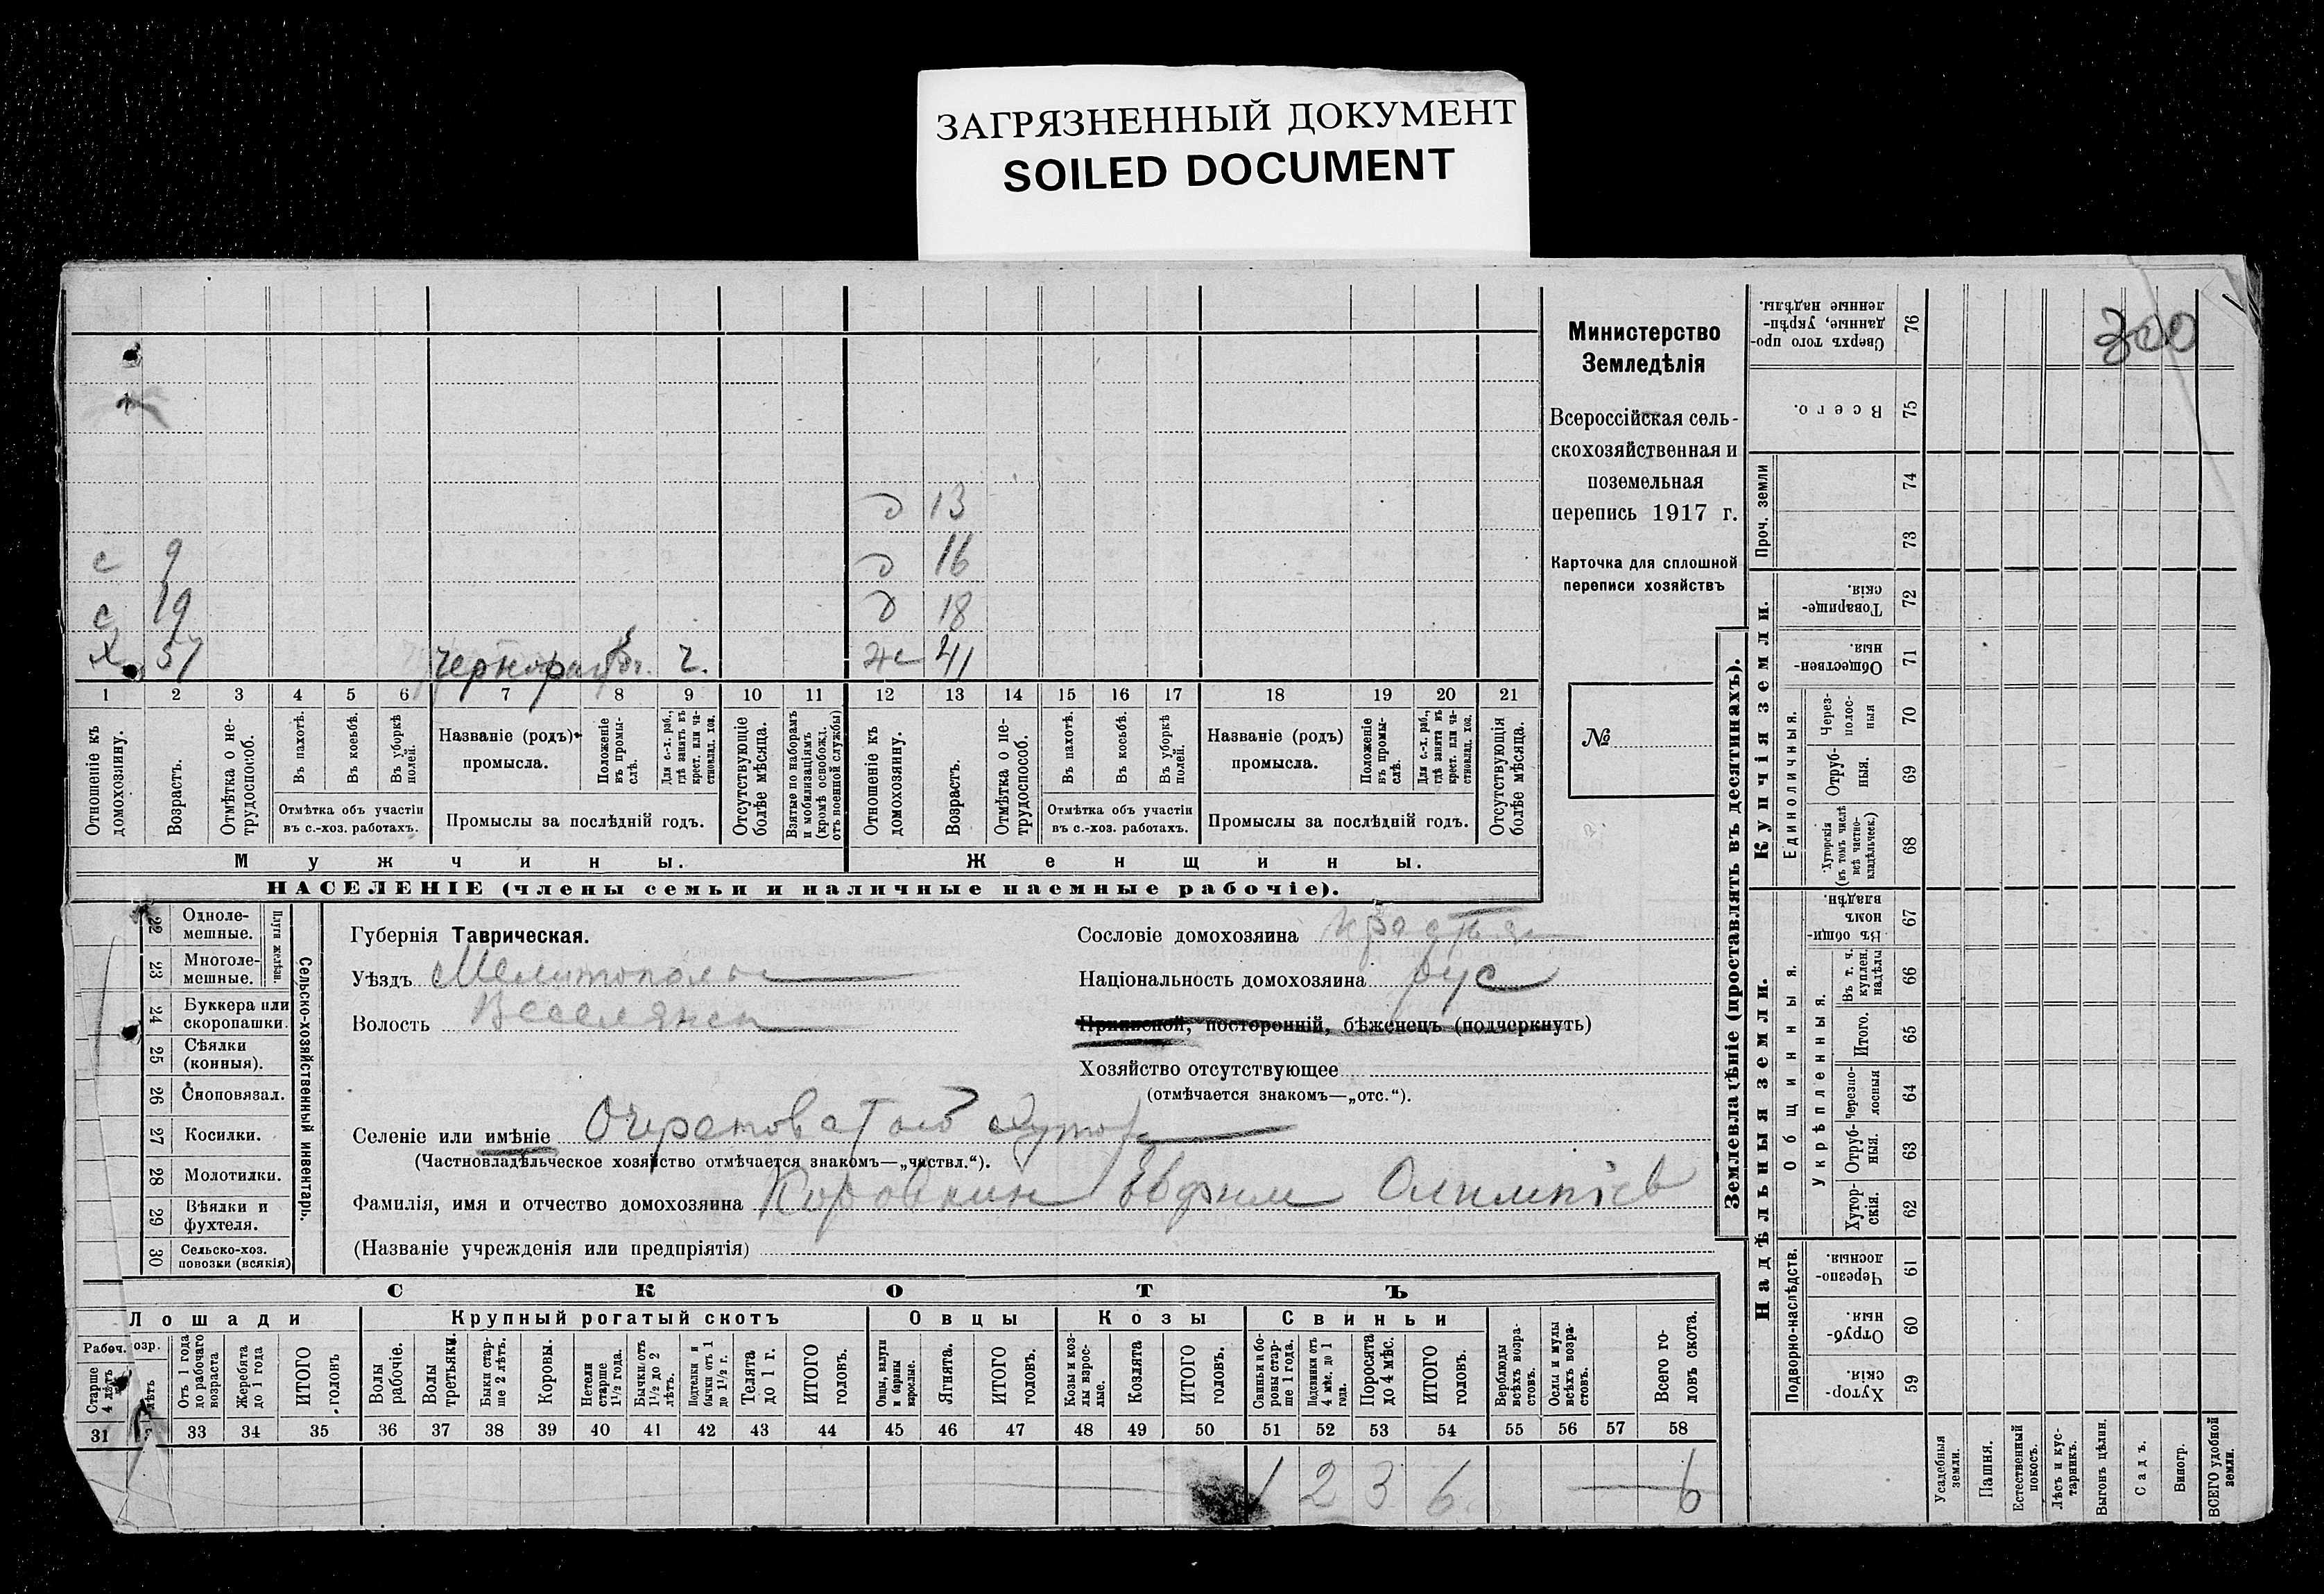 ЗАГРЯЗНЕННЫЙ ДОКУМЕНТ
SOILED DOCUMENT
300
д 13
с 9 д 16
с 19 д 18
х 57 чернораб. ч. ж 41
1 2 3 4 5 6 7 8 9 10 11 12 13 14 15 16 17 18 19 20 21
Отношеніе къ домохозяину.
Возрастъ.
Отмѣтка о не-трудоспособ.
Въ пахотѣ.
Въ косьбѣ.
Въ уборкѣ полей.
Отмѣтка объ участіи
въ с.-хоз. работахъ.
Названіе (родъ)
промысла.
Положеніе въ промы-слѣ.
Для с.-х. раб., гдѣ занятъ въ крест. или ча-стновлад. хоз.
Промыслы за послѣдній годъ.
Отсутствующіе болѣе мѣсяца.
Взятые по наборамъ и мобилизаціямъ (кромѣ освобожд. отъ военной службы)
Отношеніе къ домохозяину.
Возрастъ.
Отмѣтка о не-трудоспособ.
Въ пахотѣ.
Въ косьбѣ.
Въ уборкѣ полей.
Отмѣтка объ участіи
въ с.-хоз. работахъ.
Названіе (родъ)
промысла.
Положеніе въ промы-слѣ.
Для с.-х. раб., гдѣ занята въ крест. или ча-стновлад. хоз.
Промыслы за послѣдній годъ.
Отсутствующія болѣе мѣсяца.
Мужчины. Женщины.
НАСЕЛЕНІЕ (члены семьи и наличные наемные рабочіе).
Министерство
Земледѣлія
Всероссійская сель-
скохозяйственная и
поземельная
перепись 1917 г.
Карточка для сплошной
переписи хозяйствъ
№
Сельско-хозяйственный инвентарь.
Плуги желѣзн.
22 Одноле-мешные.
23 Многоле-мешные.
24 Буккера или скоропашки.
25 Сѣялки (конныя).
26 Сноповязал.
27 Косилки.
28 Молотилки.
29 Вѣялки и фухтеля.
30 Сельско-хоз. повозки (всякія)
Губернія Таврическая.
Уѣздъ Мелитополь
Волость Веселянск
Сословіе домохозяина крестья
Національность домохозяина рус
Приписной, посторонній, бѣженецъ (подчеркнуть)
Хозяйство отсутствующее
(отмѣчается знакомъ—„отс.“).
Селеніе или имѣніе Очеретоватой Хутор
(Частновладѣльческое хозяйство отмѣчается знакомъ—„частвл.“).
Фамилія, имя и отчество домохозяина Коровкин Евфим Олимпіев
(Названіе учрежденія или предпріятія)
СКОТЪ
Лошади Крупный рогатый скотъ Овцы Козы Свиньи
Рабоч. озр.
Старше 4 лѣтъ
лѣтъ
Отъ 1 года до рабочаго возраста
Жеребята до 1 года
ИТОГО головъ
Волы рабочіе.
Волы третьяки.
Быки стар-ше 2 лѣтъ.
Коровы.
Нетели старше 1½ года.
Бычки отъ 1½ до 2 лѣтъ.
Подтелки и бычки отъ 1 до 1½ г.
Телята до 1 г.
ИТОГО головъ.
Овцы, валухи и бараны взрослые.
Ягнята.
ИТОГО головъ.
Козы и коз-лы взрос-лые.
Козлята
ИТОГО головъ.
Свиньи и бо-ровы стар-ше 1 года.
Подсвинки отъ 4 мѣс. до 1 года.
Поросята до 4 мѣс.
ИТОГО головъ.
Верблюды всѣхъ возра-стовъ.
Ослы и мулы всѣхъ возра-стовъ.
Всего го-ловъ скота.
31 33 34 35 36 37 38 39 40 41 42 43 44 45 46 47 48 49 50 51 52 53 54 55 56 57 58
1 2 3 6 6
Землевладѣніе (проставлять въ десятинахъ).
Надѣльныя земли. Купчія земли.
Проч. земли
Подворно-наслѣдств.
Общинныя.
Укрѣпленныя.
Единоличныя.
76 Сверхъ того про-данные, укрѣп-ленные надѣлы.
75 Всего.
74
73
72 Товарище-скія.
71 Обществен-ныя.
70 Через-полос-ныя
69 Отруб-ныя.
68 Хуторскія (въ томъ числѣ всѣ частно-владѣльческ.)
67 Въ общин-номъ владѣн.
66 Въ т. ч. куплен. надѣлы
65 Итого.
64 Черезпо-лосныя
63 Отруб-ныя.
62 Хутор-скія.
61 Черезпо-лосныя.
60 Отруб-ныя
59 Хутор-скія.
Усадебныя земли.
Пашня.
Естественный покосъ.
Лѣсъ и кус-тарникъ.
Выгонъ цѣлин.
Садъ.
Виногр.
ВСЕГО удобной земли.